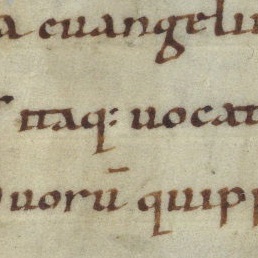 a euangeli
itaq: uocat
uorū quipp